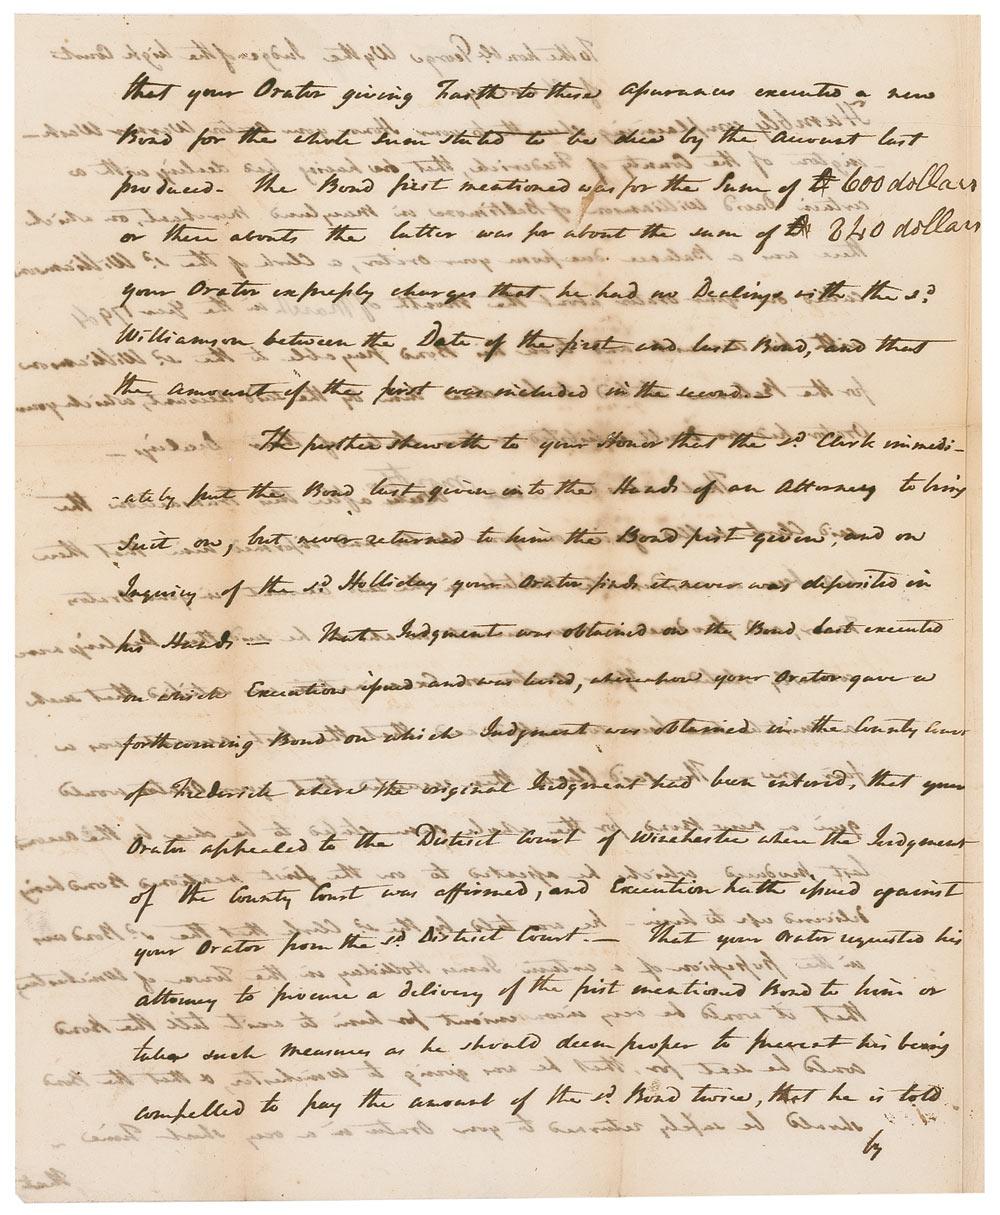 that your Orator giving Faith to these assurances executed a new
Bond for the whole sum stated to be due by the Account last
produced. the Bond first mentioned was for the Sum of 600 dollars
or there abouts the latter was for about the sum of 840 dollars
your Orator expressly charges that he had no Dealings with the sd.
Williamson between the Date of the first and last Bond, and that
the amount of the first was included in the second.—
He further sheweth to your Honor that the sd. Clerk immedi-
-ately put the Bond last given into the Hands of an Attorney to bring
Suit on, but never returned to him the Bond first given, and on
Inquiry of the sd. Holliday your Orator finds it never was deposited in
his Hands — That Judgment was obtained on the Bond last executed
on which Execution issued and was levied, whereupon your Orator gave a
forthcoming Bond on which Judgment was obtained in the County Court
of Frederick where the original Judgment had been entered, that your
Orator appealed to the District Court of Winchester where the Judgment
of the County Court was affirmed, and Execution hath issued against
your Orator from the sd. District Court.— That your Orator requested his
attorney to procure a delivery of the first mentioned Bond to him or
take such measures as he should deem proper to prevent his being
compelled to pay the amount of the sd. Bond twice, that he is told
by